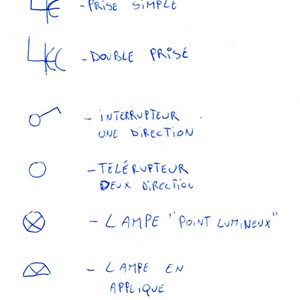 - PRISE SIMPLE
- DOUBLE PRISE
- INTERRUPTEUR
UNE DIRECTION
- TELÉRUPTEUR
DEUX DIRECTION
- LAMPE "POINT LUMINEUX"
- LAMPE EN
APPLIQUE